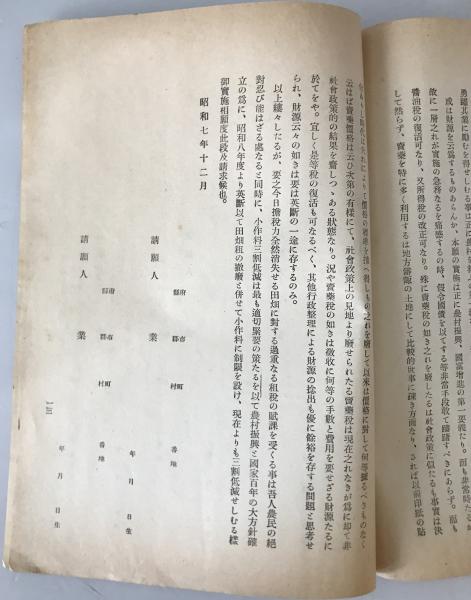 勇躍其業に勵むを得せしむる事は正に農村
或は財源を云爲するものあらんか、本願の實施は正に農村振興、國富増進の第一要義たり。而も非常時たる
故に一層之れが實施の急務なるを痛感するの時、假令國債を以てする等非常手段敢て躊躇すべきにあらず。而も
醬油税の復活可なり、又所得税の改正可なり。殊に賣藥の如き之れを廢したるは社會政策に似たるも事實は決
して然らず、賣藥を特に多く利用するは地方
の土地にして比較的世事に疎き方面なり、されば以前印紙の貼
しもの之れを廢して以來は價格に對して何等據るべきものなく
云はば賣藥價格は云ひ次第の有樣にて、社會政策上の見地より廢せられたる賣藥税は現在之れなきが爲に却て非
社會政策的の結果を齎しつゝある狀態なり。況や賣藥税の如きは徴收に何等の手數と費用を要せざる財源たるに
於てをや。宜しく是等税の復活も可なるべく、其他行政整理による財源の捻出も優に餘裕を存する問題と思考せ
られ、財源云々の如きは要は英斷の一途に存するのみ。
以上縷々したるが、要之今日擔税力全然消失せる田畑に對する過重なる租税の賦課を受くる事は吾人農民の絕
對忍び能はざる處なると同時に、小作料三割低減は最も適切緊要の策たるを以て農村振興と國家百年の大方針確
立の爲に、昭和八年度より英斷以て田畑租の撤廢と併せて小作料に制限を設け、現在よりも三割低減せしむる樣
御實施相願度此段及請求候也。
昭和七年十二月
府縣 郡市 町村 番地
請願人 業 年 月 日生
府縣 郡市 町村 番地
請願人 業 年 月 日生
一三